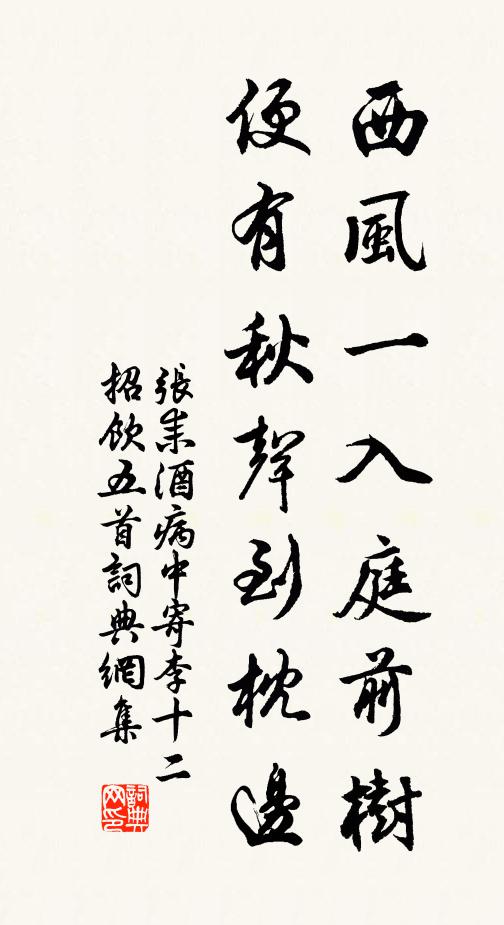 西風一入庭前樹
便有秋聲到枕邊
張耒酒病中寄李十二
招飲五首詞典網集
詞典網印